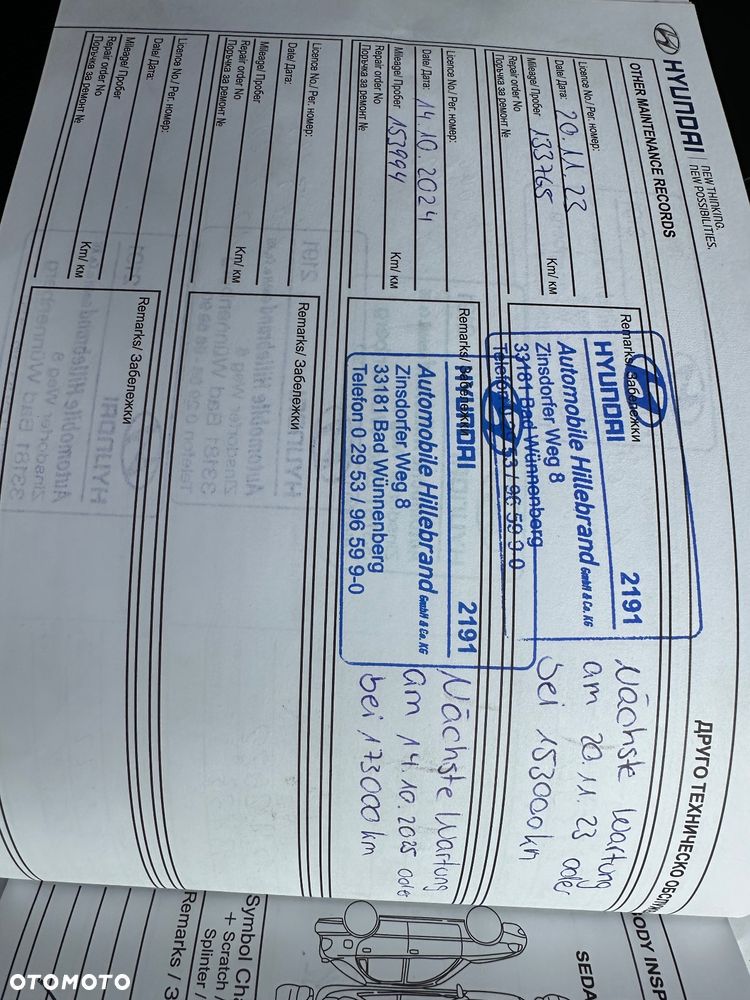 HYUNDAI
NEW THINKING.
NEW POSSIBILITIES.
OTHER MAINTENANCE RECORDS
ДРУГО ТЕХНИЧЕСКО
Licence No./ Рег. номер:
Date/ Дата: 20.11.23
Mileage/ Пробег 133765 Km/ км
Repair order No
Поръчка за ремонт №
Remarks/ Забележки
HYUNDAI 2191
Automobile Hillebrand GmbH & Co. KG
Zinsdorfer Weg 8
33181 Bad Wünnenberg
Telefon 0 29 53 / 96 59 9-0
Nächste Wartung
am 20.11.23 oder
bei 153000km
Licence No./ Рег. номер:
Date/ Дата: 14.10.2024
Mileage/ Пробег 153994 Km/ км
Repair order No
Поръчка за ремонт №
Remarks/ Забележки
DAI 2191
Automobile Hillebrand GmbH & Co. KG
Zinsdorfer Weg 8
33181 Bad Wünnenberg
Telefon 0 29 53 / 96 59 9-0
Nächste Wartung
am 14.10.2025 oder
bei 173000km
Licence No./ Рег. номер:
Date/ Дата:
Mileage/ Пробег Km/ км
Repair order No
Поръчка за ремонт №
Remarks/ Забележки
Licence No./ Рег. номер:
Date/ Дата:
Mileage/ Пробег Km/ км
Repair order No
Поръчка за ремонт №
Remarks/ Забележки
BODY INSP
SEDA
Symbol Cha
+ Scratch /
Splinter /
Remarks / З
OTOMOTO